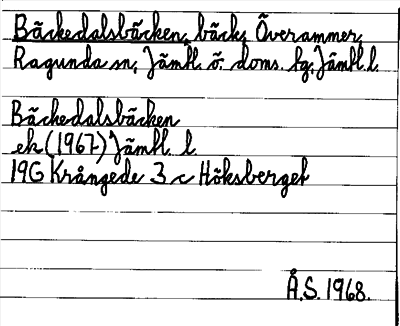 Bäckedalsbäcken, bäck, Överammer,
Ragunda sn, Jämtl. ö. doms. tg, Jämtl. l.
Bäckedalsbäcken
ek (1967) Jämtl. l
19G Krångede 3 c Höksberget
Å.S. 1968.